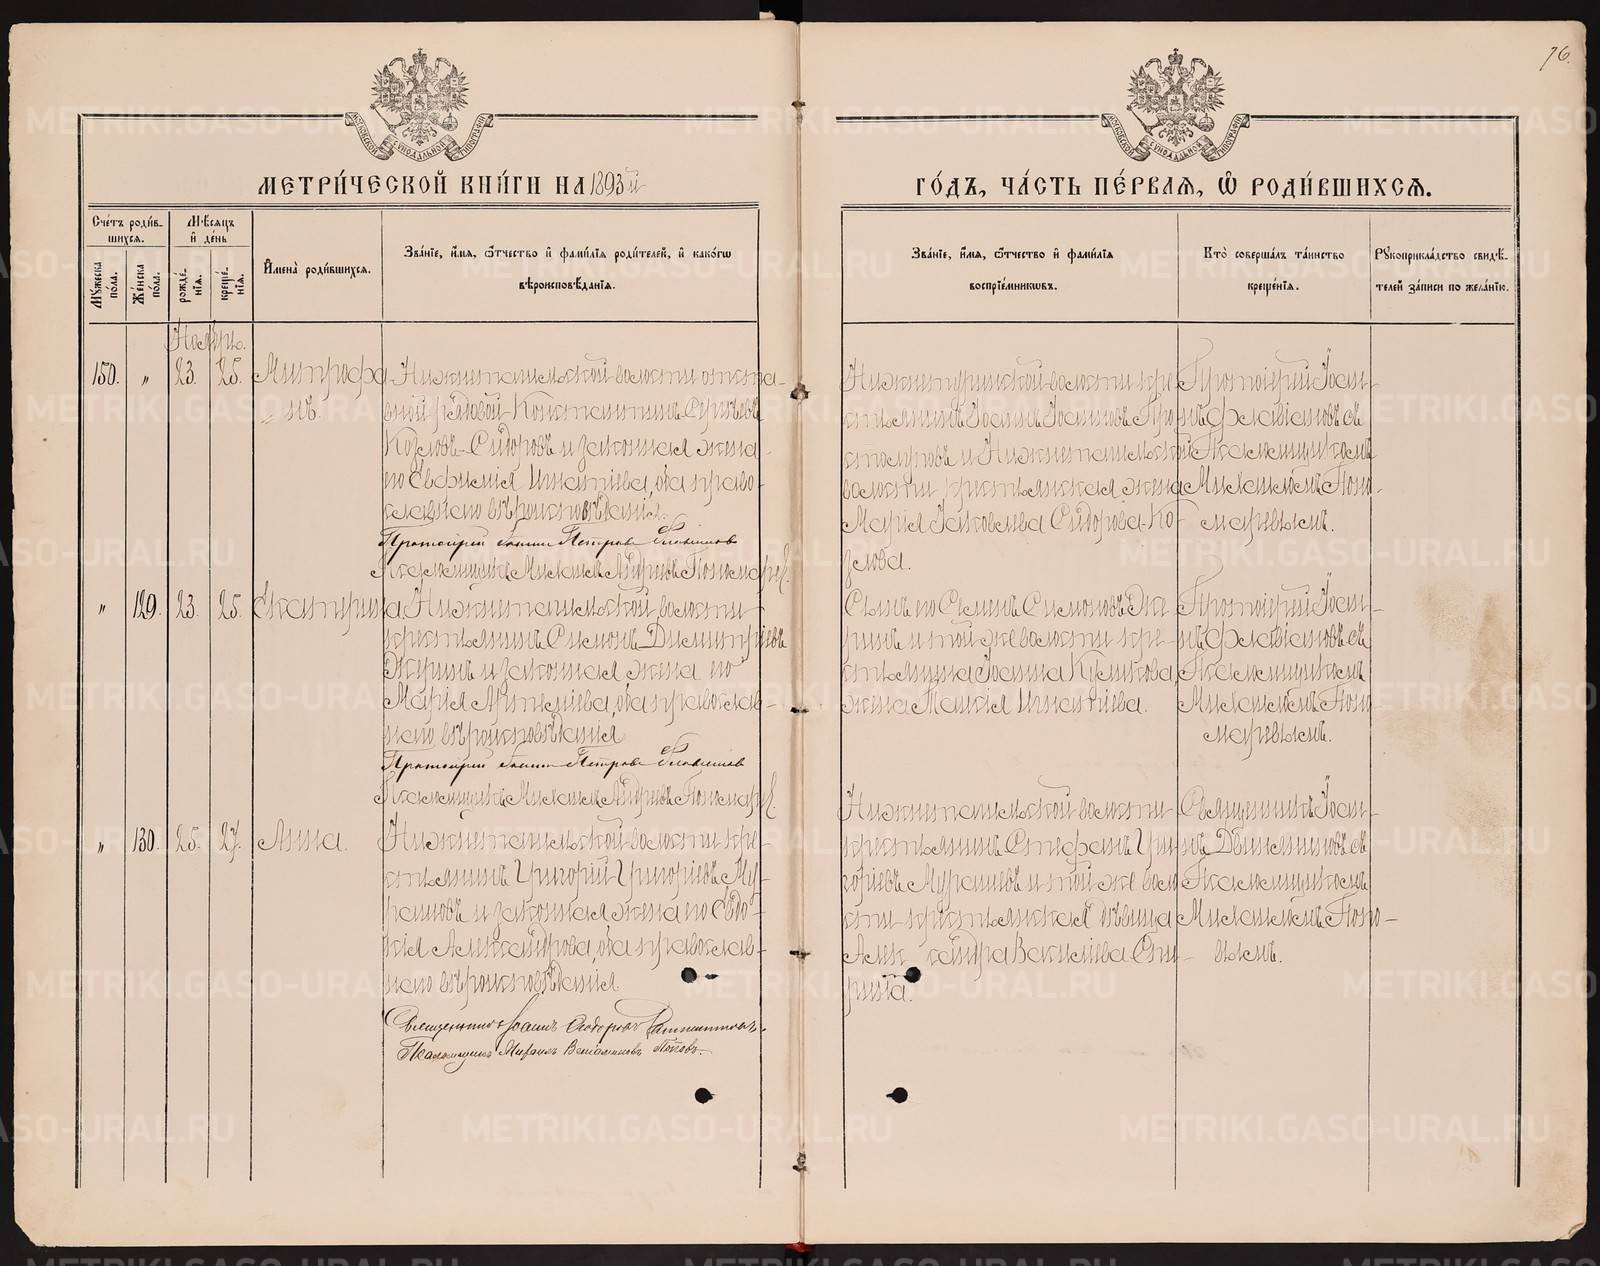 76.
МЕТРИ́ЧЕСКОЙ КНИ́ГИ НА 1893й
ГО́ДЪ, ЧА́СТЬ ПЕ́РВАЯ, Ѡ РОДИ́ВШИХСЯ.
Сче́тъ роди́вшихся.
Мꙋжеска по́ла.
Же́нска по́ла.
Мѣсяцъ и де́нь
рожде́нія.
креще́нія.
Имена̀ роди́вшихся.
Зва́ніе, и́мя, ѻ҆́тчество и҆ фами́лія роди́телей, и҆ како́гѡ
вѣроисповѣ́данія.
Зва́ніе, и́мя, ѻ҆́тчество и҆ фами́лія
воспріе́мникѡвъ.
Кто̀ соверша́лъ та́инство
креще́нія.
Рꙋкоприкла́дство свидѣ́-
телей за́писи по жела́нію.
Ноябрь.
150. „ 23. 25. Митрофа-
нъ.
Нижнетагильской волости отста-
вной рядовой Константинъ Сергѣевъ
Козловъ-Сидоровъ и законная жена
его Евфимія Игнатіева, оба право-
славнаго вѣроисповѣданія.
Протоіерей Іоаннъ Петровъ Флавіановъ
Псаломщикъ Михаилъ Андреевъ Пономаревъ.
Нижнетуринской волости кре-
стьянинъ Іоаннъ Іоанновъ
и Нижнетагильской
волости крестьянская жена
Марія Яковлева Сидорова-Ко-
злова.
Протоіерей Іоан-
нъ Флавіановъ съ
Псаломщикомъ
Михаиломъ Поно-
маревымъ.
„ 129. 23. 25. Екатерина
Нижнетагильской волости
крестьянинъ Симонъ Димитріевъ
и законная жена его
Марія Артеміева, оба православ-
наго вѣроисповѣданія
Протоіерей Іоаннъ Петровъ Флавіановъ
Псаломщикъ Михаилъ Андреевъ Пономаревъ.
Сынъ его Семенъ Симоновъ
и той же волости кре-
стьянина Іоанна Куликова,
жена Игнатіева.
Протоіерей Іоан-
нъ Флавіановъ съ
Псаломщикомъ
Михаиломъ Поно-
маревымъ.
„ 130. 25. 27. Анна.
Нижнетагильской волости кре-
стьянинъ Григорій Григоріевъ
и законная жена его Евдо-
кія Александрова, оба православ-
наго вѣроисповѣданія
Священникъ Іоаннъ
Псаломщикъ Михаилъ Веніаминовъ Поповъ.
Нижнетагильской волости
крестьянинъ Стефанъ Гри-
горіевъ и той же воло-
сти крестьянская дѣвица
Александра Василіева
Священникъ Іоан-
нъ съ
Псаломщикомъ
Михаиломъ Попо-
вымъ.
METRIKI.GASO-URAL.RU